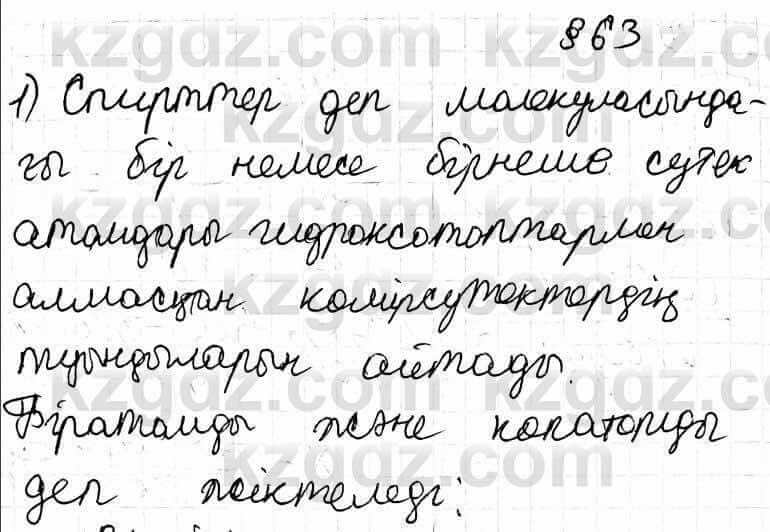 § 63
1) Спирттер деп молекуласында-
ғы бір немесе бірнеше сутек
атомдары гидроксотоптармен
алмасқан көмірсутектердің
туындыларын айтады.
Біратомды және көпатомды
деп жіктеледі: